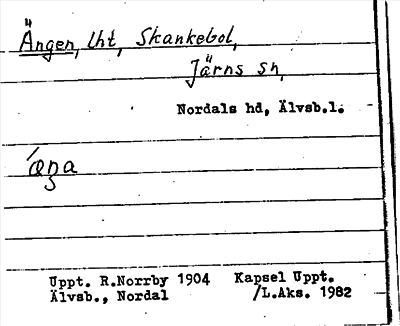 Ängen, lht, Skankebol,
Järns sn,
Nordals hd, Älvsb.l.
´æŋa
Uppt. R.Norrby 1904 Kapsel Uppt.
Älvsb., Nordal /L.Aks. 1982